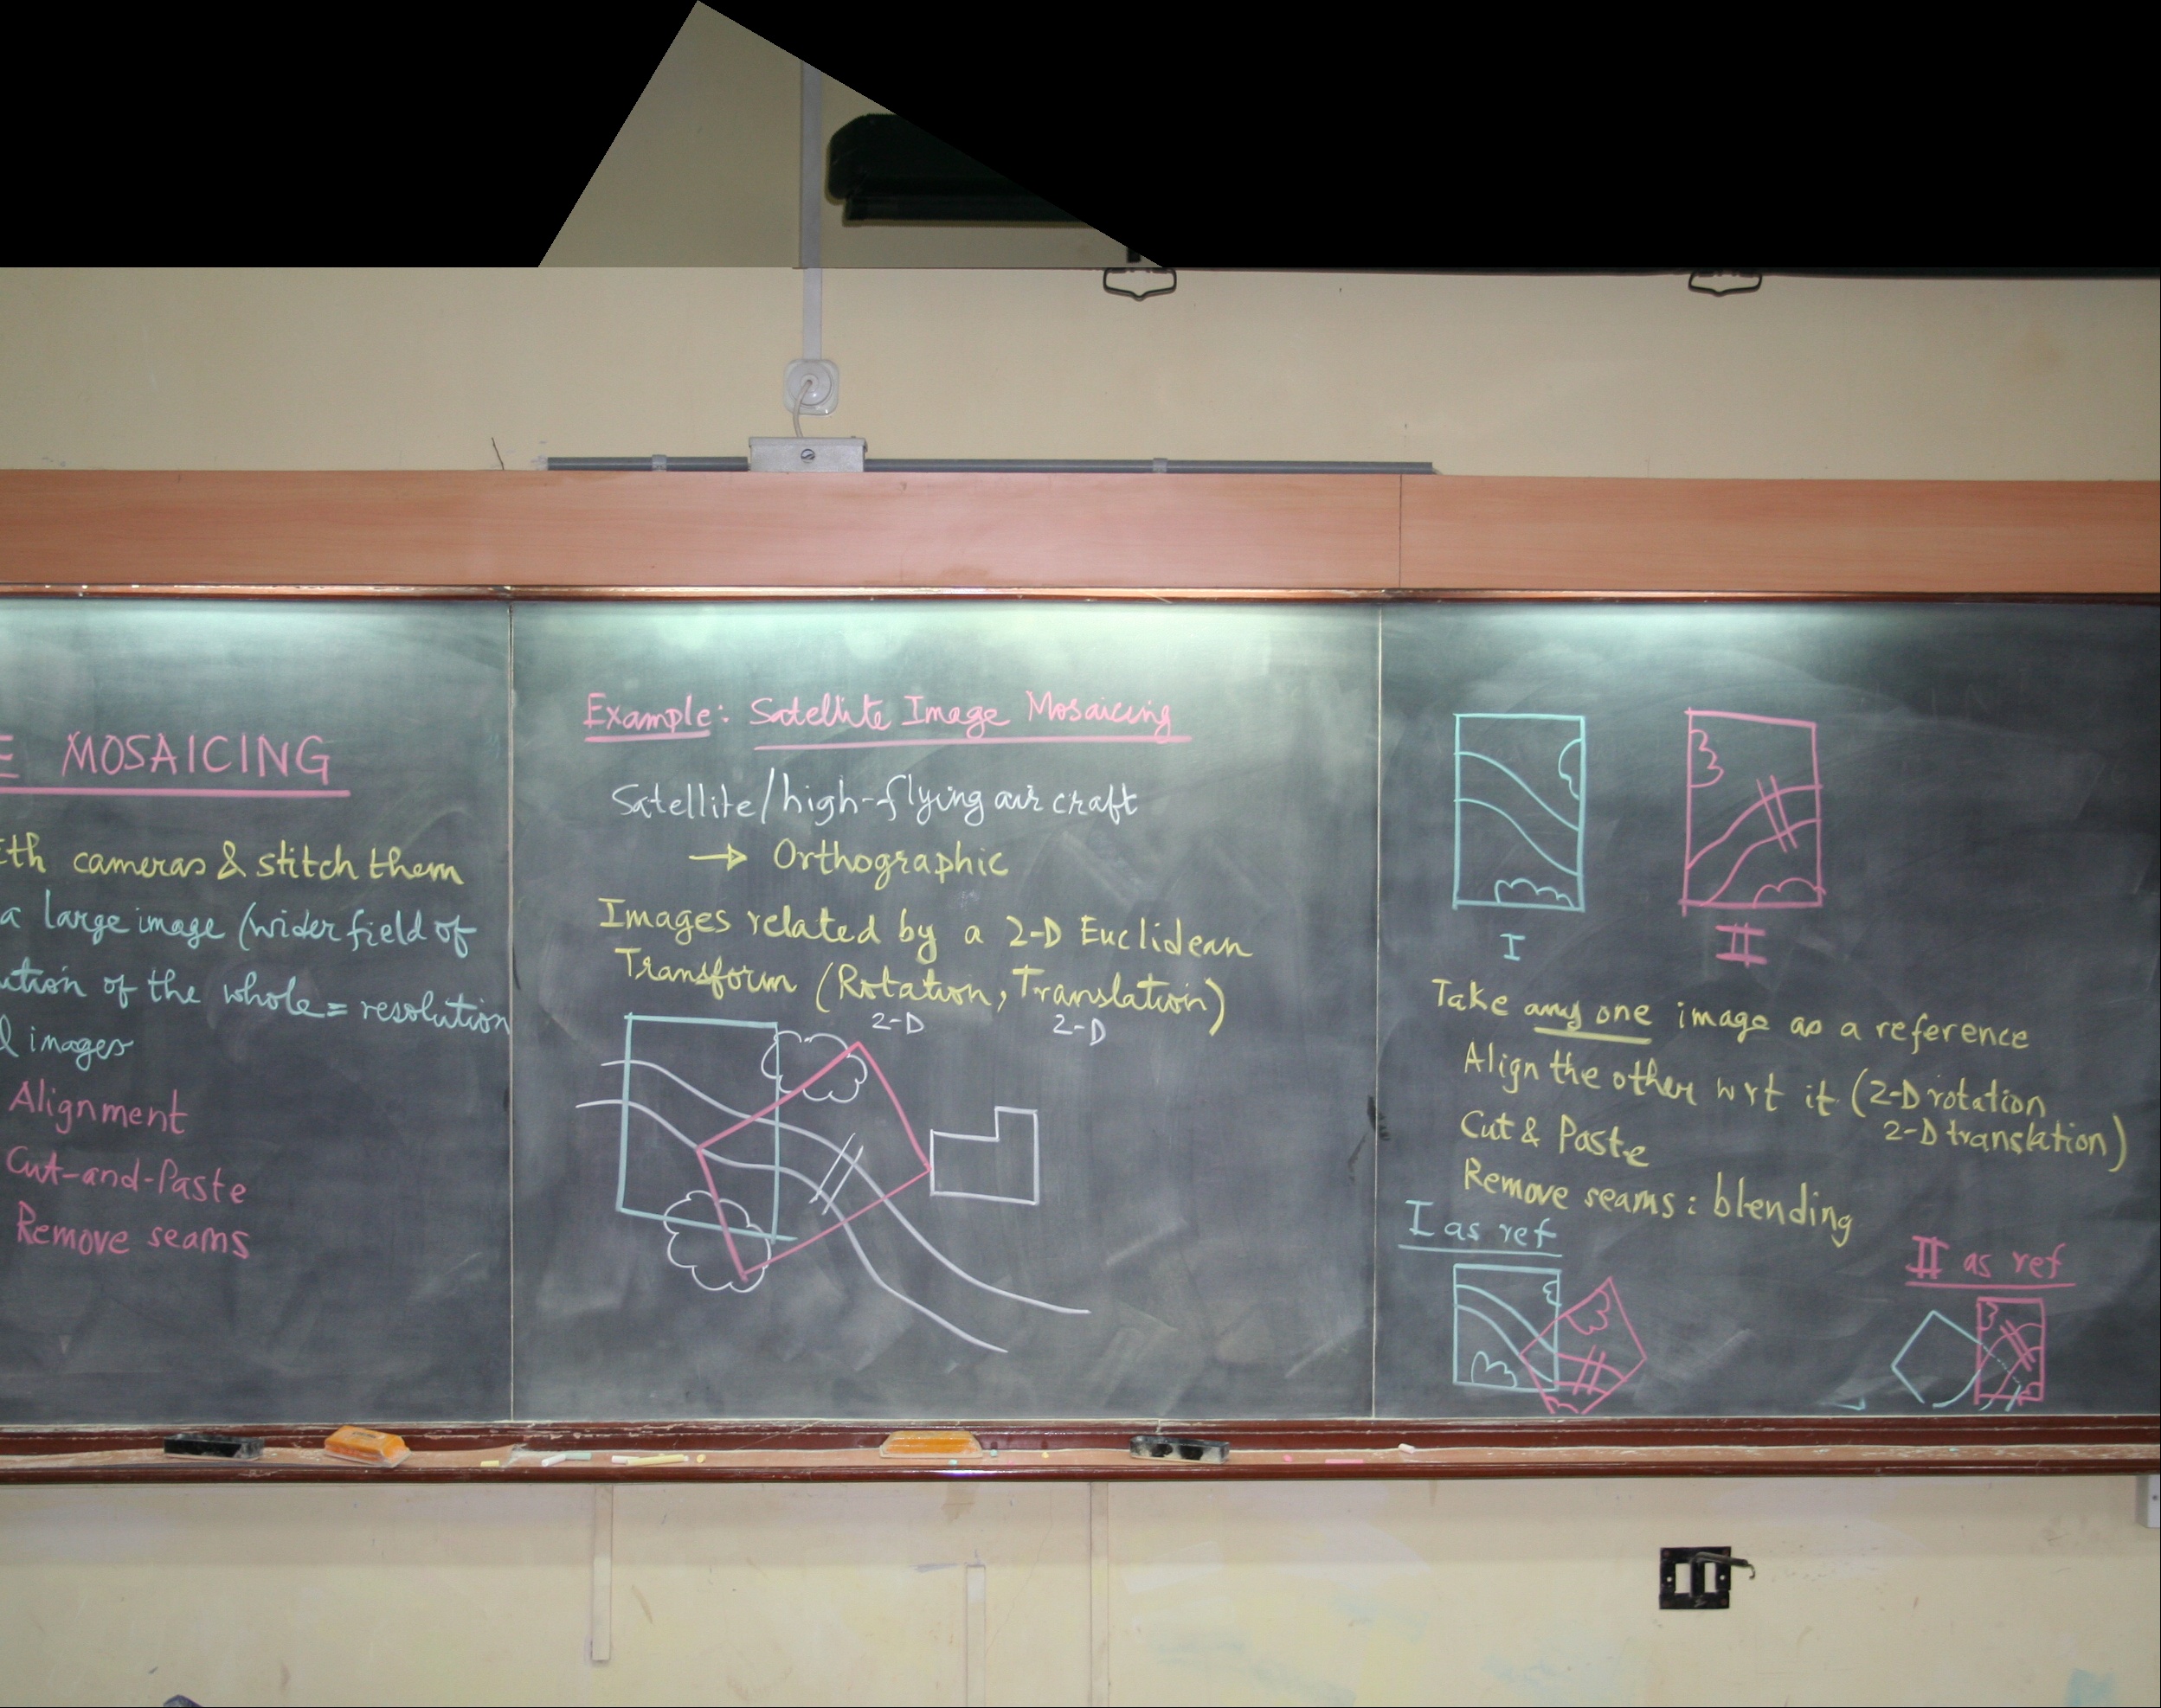 MOSAICING
cameras & stitch them
a large image (wider field of
of the whole = resolution
images
Alignment
Cut-and-Paste
Remove seams
Example: Satellite Image Mosaicing
Satellite/high-flying air craft
→ Orthographic
Images related by a 2-D Euclidean
Transform (Rotation, Translation)
2-D 2-D
I II
Take any one image as a reference
Align the other wrt it (2-D rotation
2-D translation)
Cut & Paste
Remove seams : blending
I as ref
II as ref